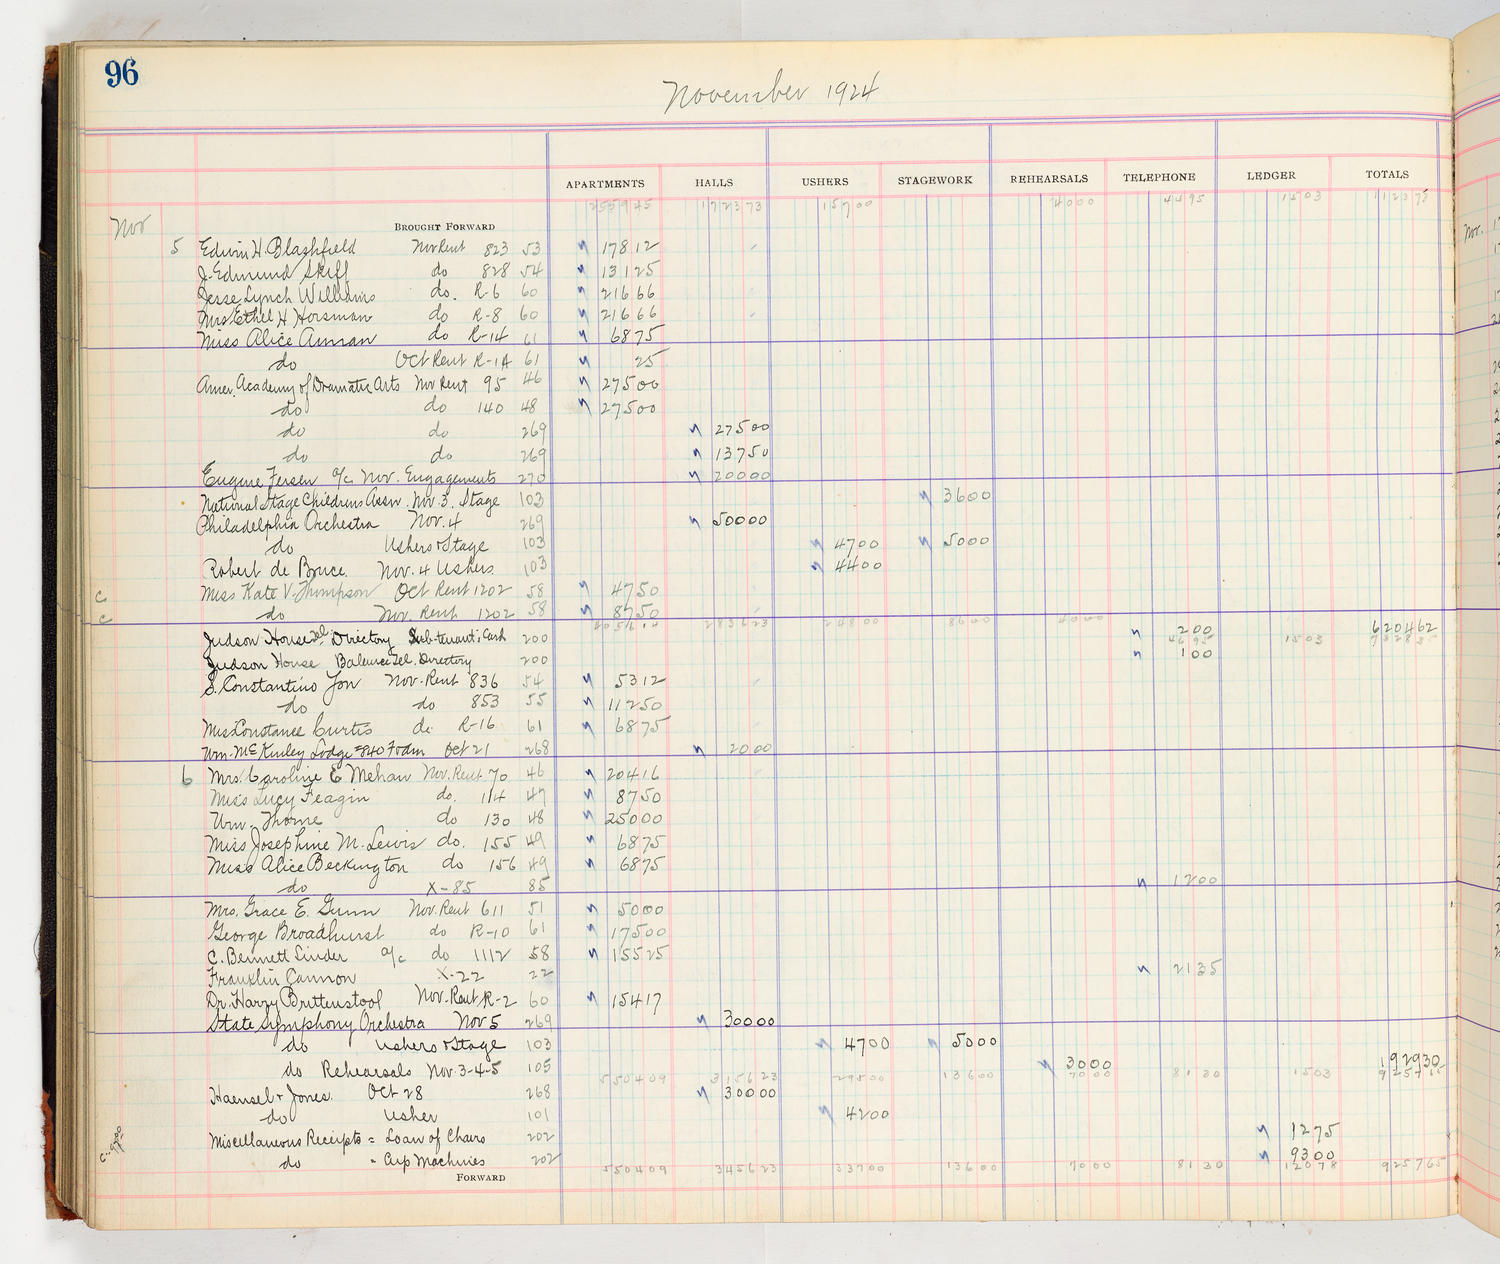 96
November 1924
APARTMENTS HALLS USHERS STAGEWORK REHEARSALS TELEPHONE LEDGER TOTALS
255945 172373 15700 4000 4495 1503 112375
Nov BROUGHT FORWARD
5 Edwin H. Blashfield Nov Rent 823 53 17812
J. Edmund Skiff do 828 54 13125
Jesse Lynch Williams do. R-6 60 21666
Mrs Ethel H Horsman do R-8 60 21666
Miss Alice Annan do R-14 61 6875
do Oct Rent R-14 61 25
Amer. Academy of Dramatic Arts Nov Rent 95 46 27500
do do 140 48 27500
do do 269 27500
do do 269 13750
Eugene Fersen a/c Nov. Engagements 270 20000
National Stage Childrens Assn. Nov. 3. Stage 103 3600
Philadelphia Orchestra Nov. 4 269 50000
do Ushers & Stage 103 4700 5000
Robert de Bruce. Nov. 4 Ushers 103 4400
c Miss Kate V. Thompson Oct Rent 1202 58 4750
c do Nov. Rent 1202 58 8750
283623 24800 8600 4000
Judson House Tel. Directory Sub-tenants Cash 200 200 620462
4695 1503
Judson House Balance Tel. Directory 200 100
S. Constantino Yon Nov. Rent 836 54 5312
do do 853 55 11250
Miss Constance Curtis do R-16 61 6875
Wm. McKinley Lodge #840 F & AM Oct 21 268 2000
6 Mrs. Caroline E Mehan Nov. Rent 70 46 20416
Miss Lucy Feagin do. 114 47 8750
Wm. Thorne do 130 48 25000
Miss Josephine M. Lewis do. 155 49 6875
Miss Alice Beckington do 156 49 6875
do X-85 85 1200
Mrs. Grace E. Gunn Nov. Rent 611 51 5000
George Broadhurst do R-10 61 17500
C. Bennett Linder a/c do 1112 58 15525
Franklin Cannon X-22 22 2135
Dr. Harry Brittenstool Nov. Rent R-2 60 15417
State Symphony Orchestra Nov 5 269 30000
do Ushers & Stage 103 4700 5000
do Rehearsals Nov. 3-4-5 105 3000 192930
550409 315623 29500 13600 7000 8130 1503
Haensel & Jones. Oct 28 268 30000
do Usher 101 4200
Miscellaneous Receipts = Loan of Chairs 202 1275
do " Cup Machines 202 9300
550409 345623 33700 13600 7000 8130 12078 925765
FORWARD